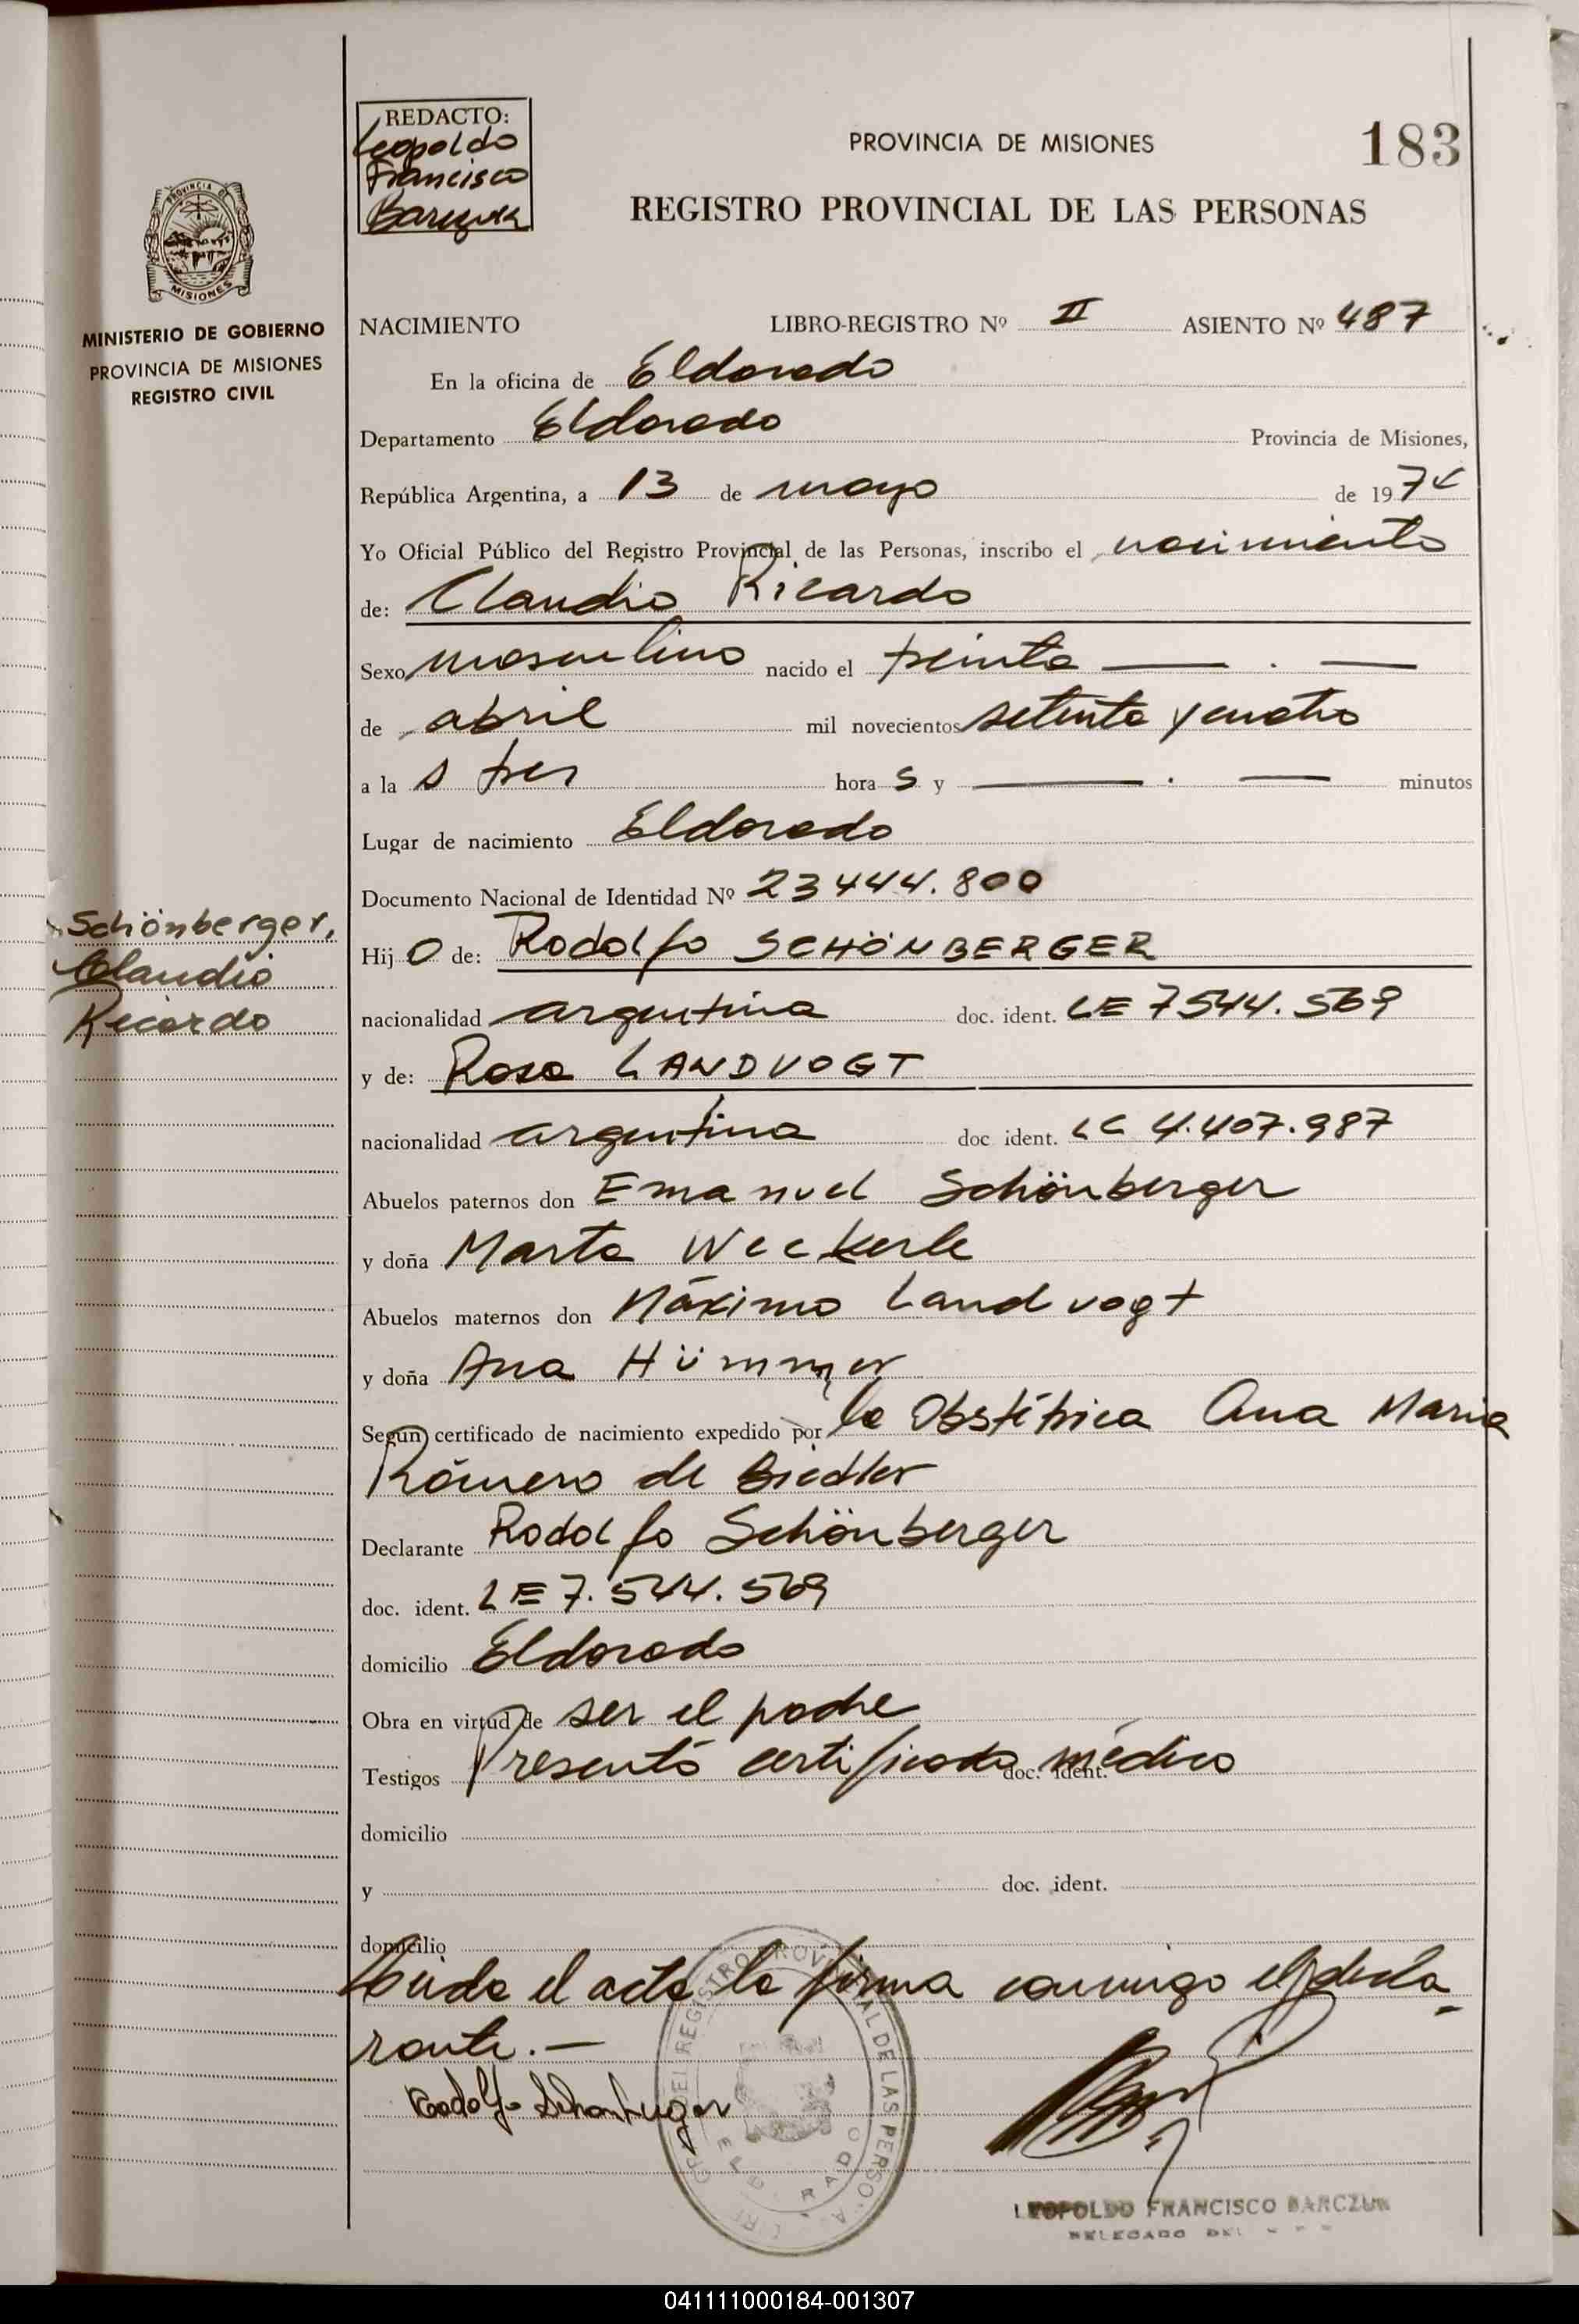 REDACTO:
Leopoldo
Francisco
PROVINCIA DE MISIONES
183
REGISTRO PROVINCIAL DE LAS PERSONAS
PROVINCIA DE
MISIONES
MINISTERIO DE GOBIERNO
PROVINCIA DE MISIONES
REGISTRO CIVIL
NACIMIENTO LIBRO-REGISTRO Nº II ASIENTO Nº 487
En la oficina de Eldorado
Departamento Eldorado Provincia de Misiones,
República Argentina, a 13 de mayo de 1974
Yo Oficial Público del Registro Provincial de las Personas, inscribo el nacimiento
de: Claudio Ricardo
Sexo masculino nacido el treinta
de abril mil novecientos setenta y cuatro
a la s tres hora s y minutos
Lugar de nacimiento Eldorado
Documento Nacional de Identidad Nº 23444.800
Schönberger,
Claudio
Ricardo
Hij o de: Rodolfo SCHÖNBERGER
nacionalidad argentina doc. ident. LE 7544.569
y de: Rosa LANDVOGT
nacionalidad argentina doc ident. LC 4.407.987
Abuelos paternos don Emanuel Schönberger
y doña Marta Weckerle
Abuelos maternos don Máximo Landvogt
y doña Ana Hümmer
Según certificado de nacimiento expedido por la Obstétrica Ana Maria
Romero de Biedler
Declarante Rodolfo Schönberger
doc. ident. LE 7.544.569
domicilio Eldorado
Obra en virtud de ser el padre
Testigos Presentó certificado médico doc. ident.
domicilio
y doc. ident.
domicilio
Leida el acta la firma conmigo el decla
rante.-
Rodolfo Schonberger
REGISTRO PROVINCIAL DE LAS PERSONAS
ELDORADO
LEOPOLDO FRANCISCO BARCZUK
DELEGADO DEL
041111000184-001307